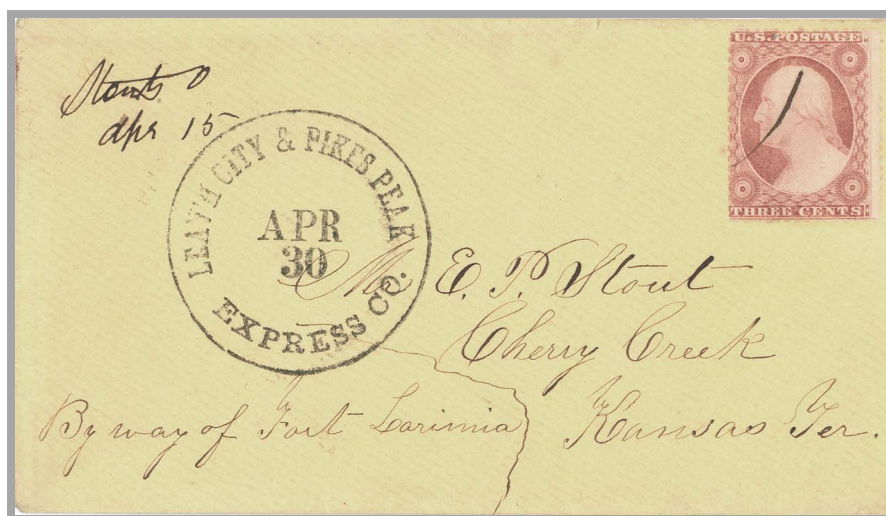 Stouts O
Apr 15
U.S. POSTAGE
THREE CENTS
LEAVH CITY & PIKES PEAK
APR
30
EXPRESS CO.
Mr E. P. Stout
Cherry Creek
Kansas Ter.
By way of Fort Larimia